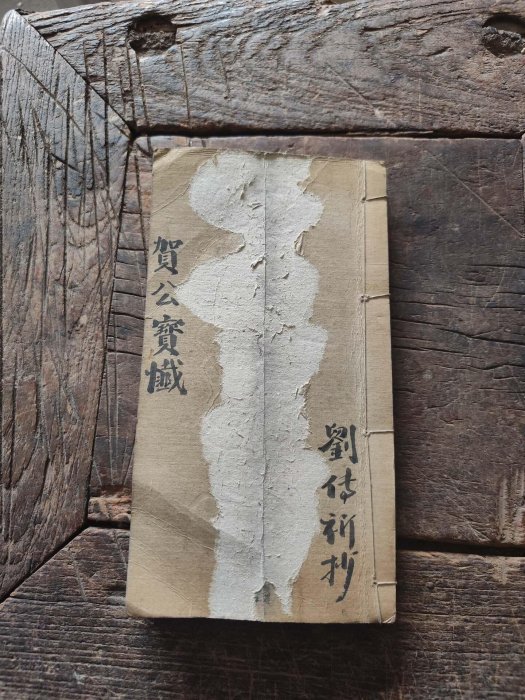 賀公寶懺
劉传祈抄